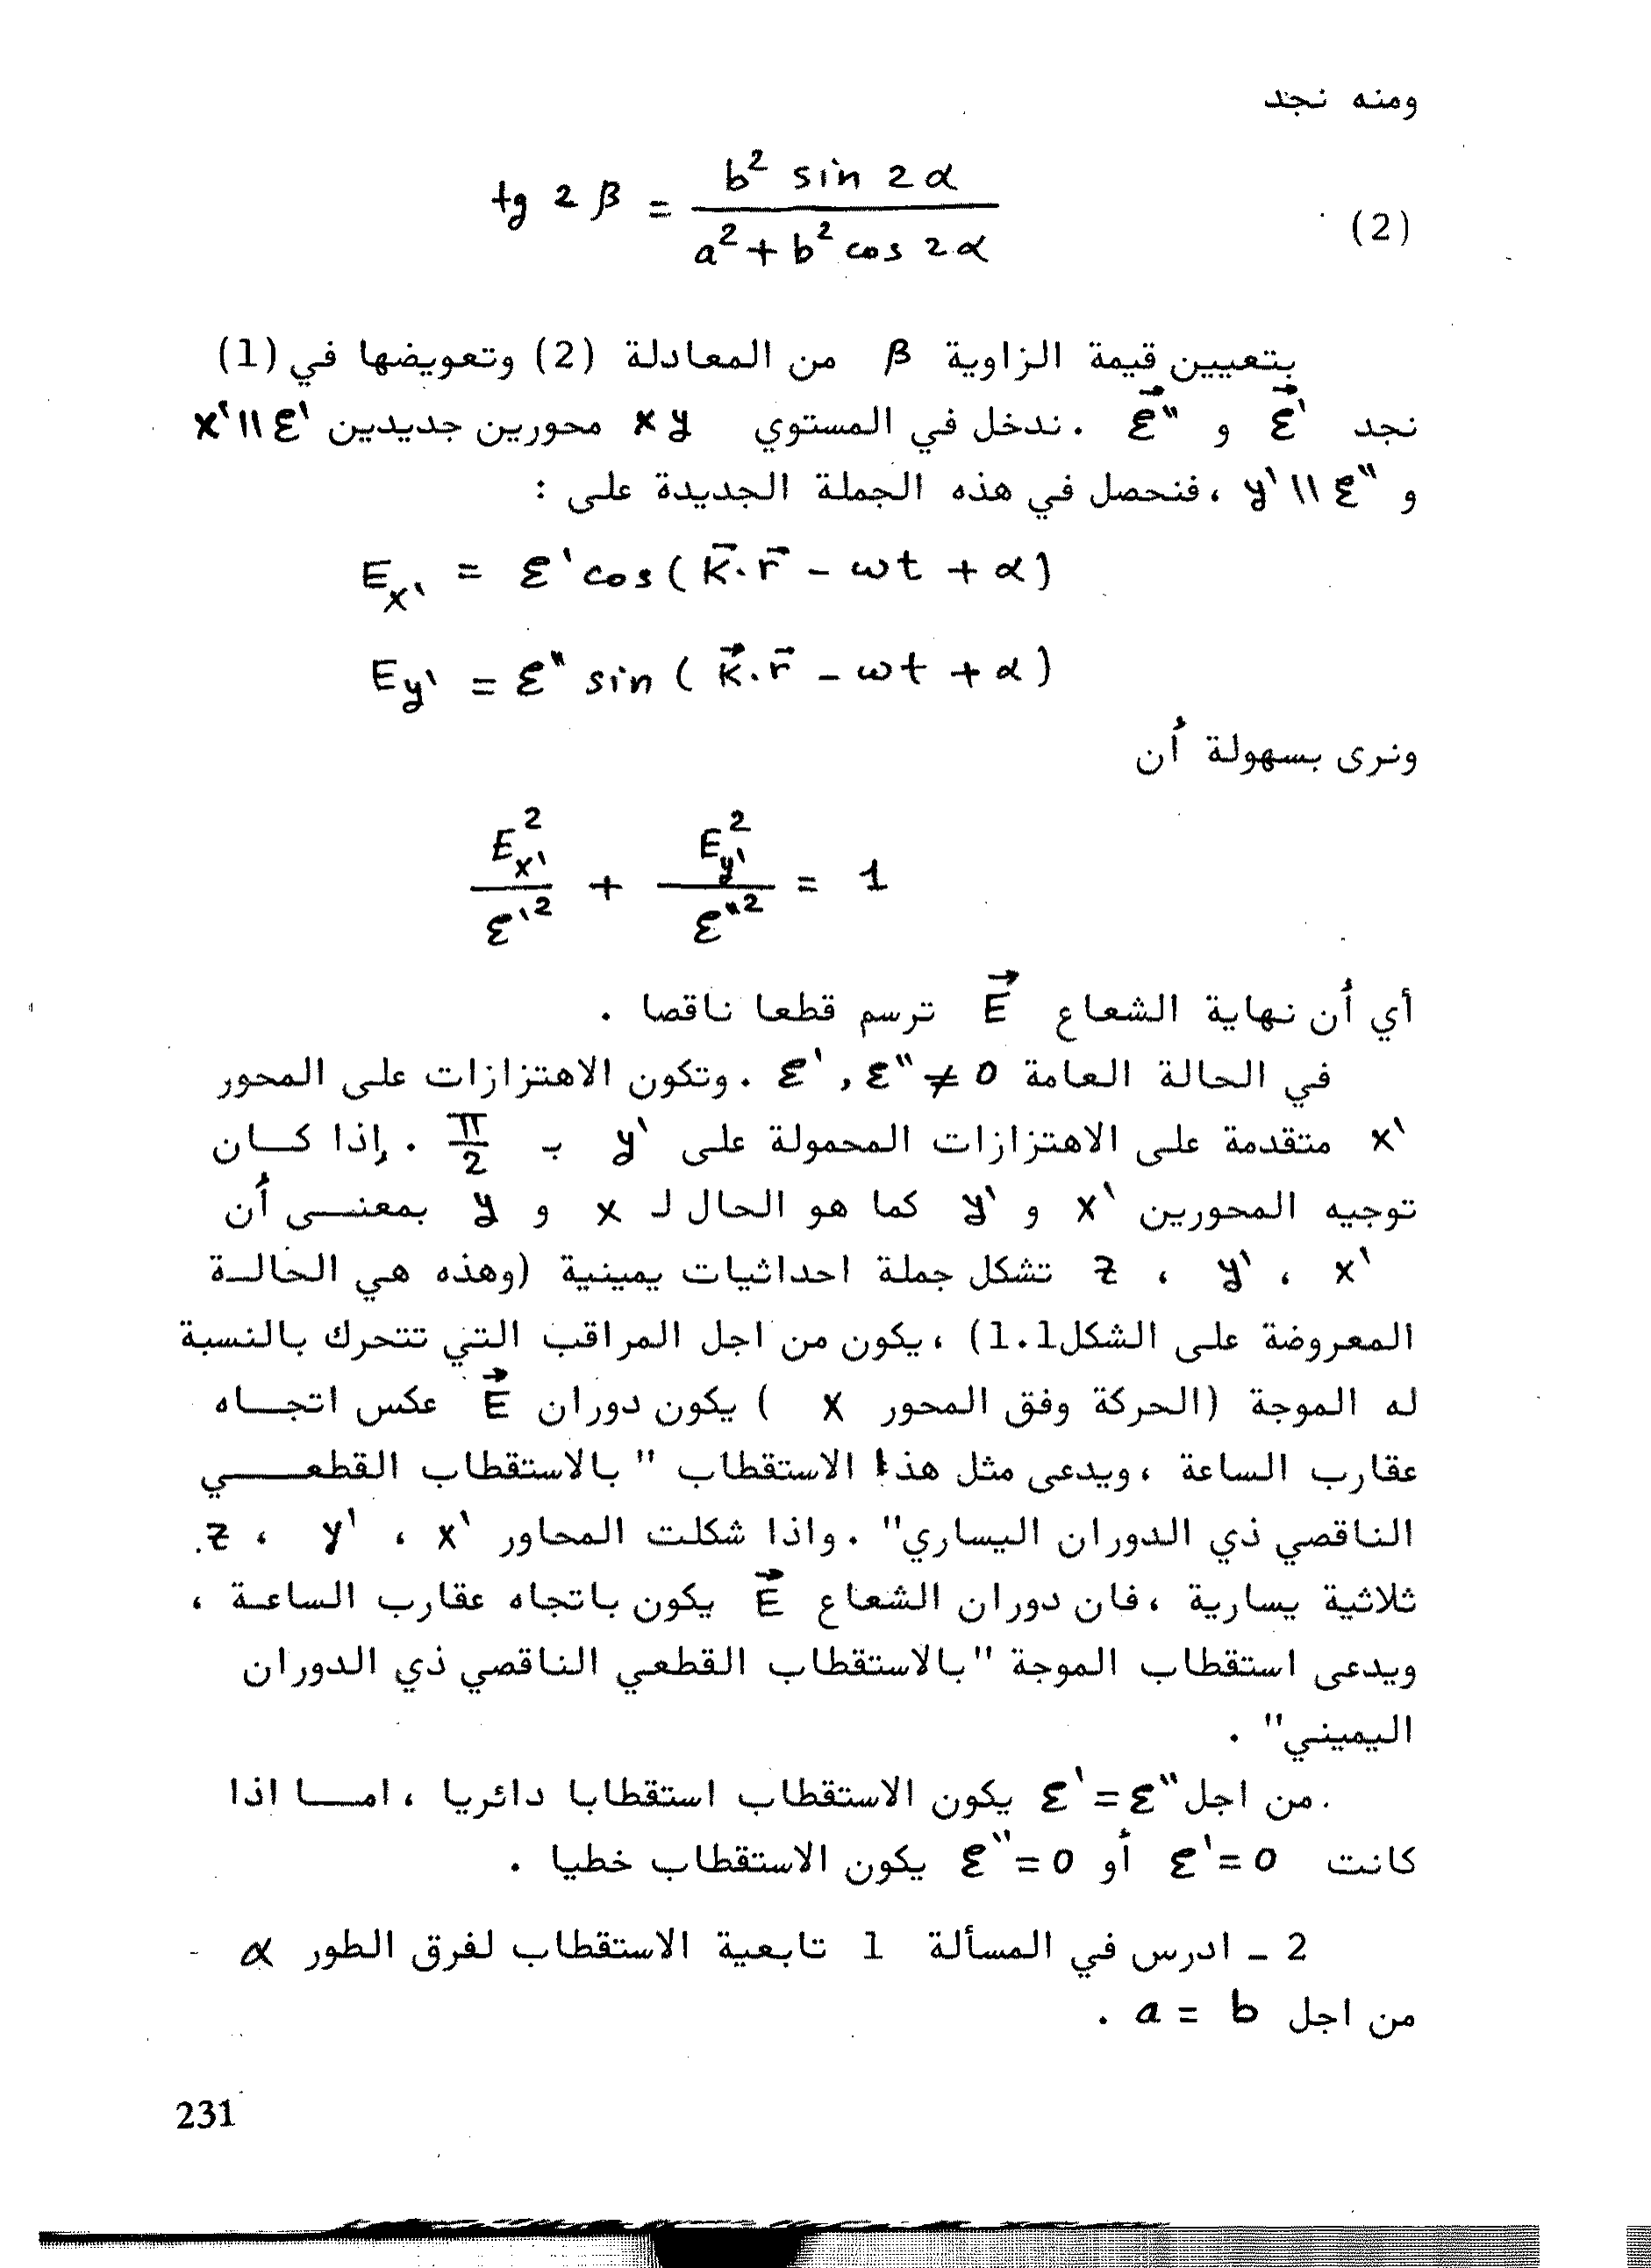 ومنه نجد
tg 2β = b² sin 2α / a² + b² cos 2α (2)
بتعيين قيمة الزاوية β من المعادلة (2) وتعويضها في (1)
نجد ℰ⃗' و ℰ⃗" . ندخل في المستوي xy محورين جديدين x'∥ℰ'
و y'∥ℰ" ، فنحصل في هذه الجملة الجديدة على :
Eₓ' = ℰ' cos( k⃗.r⃗ - ωt + α)
E_y' = ℰ" sin ( k⃗.r⃗ - ωt + α)
ونرى بسهولة أن
Eₓ'² / ℰ'² + E_y'² / ℰ"² = 1
أي أن نهاية الشعاع E⃗ ترسم قطعا ناقصا .
في الحالة العامة ℰ' , ℰ" ≠ 0 . وتكون الاهتزازات على المحور
x' متقدمة على الاهتزازات المحمولة على y' بـ π/2 . إذا كان
توجيه المحورين x' و y' كما هو الحال لـ x و y بمعنى أن
x' ، y' ، z تشكل جملة احداثيات يمينية (وهذه هي الحالة
المعروضة على الشكل1.1) ، يكون من اجل المراقب التي تتحرك بالنسبة
له الموجة (الحركة وفق المحور x ) يكون دوران E⃗ عكس اتجاه
عقارب الساعة ، ويدعى مثل هذا الاستقطاب " بالاستقطاب القطعي
الناقصي ذي الدوران اليساري" . واذا شكلت المحاور x' ، y' ، z
ثلاثية يسارية ، فان دوران الشعاع E⃗ يكون باتجاه عقارب الساعة ،
ويدعى استقطاب الموجة "بالاستقطاب القطعي الناقصي ذي الدوران
اليميني" .
من اجل ℰ'=ℰ" يكون الاستقطاب استقطابا دائريا ، اما اذا
كانت ℰ'=0 أو ℰ"=0 يكون الاستقطاب خطيا .
2 - ادرس في المسألة 1 تابعية الاستقطاب لفرق الطور α
من اجل a = b .
231